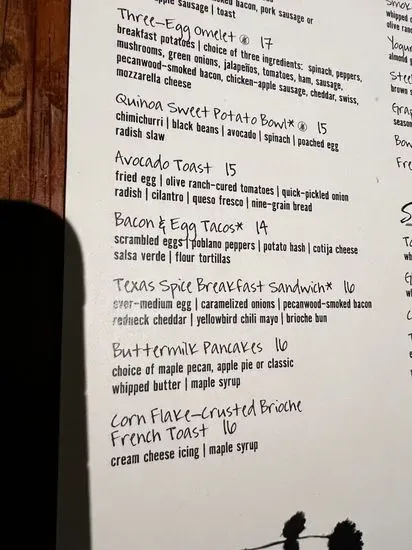 pple sausage | toast
oked bacon, pork sausage or
Three-Egg Omelet 17
breakfast potatoes | choice of three ingredients: spinach, peppers,
mushrooms, green onions, jalapeños, tomatoes, ham, sausage,
pecanwood-smoked bacon, chicken-apple sausage, cheddar, swiss,
mozzarella cheese
Quinoa Sweet Potato Bowl* 15
chimichurri | black beans | avocado | spinach | poached egg
radish slaw
Avocado Toast 15
fried egg | olive ranch-cured tomatoes | quick-pickled onion
radish | cilantro | queso fresco | nine-grain bread
Bacon & Egg Tacos* 14
scrambled eggs | poblano peppers | potato hash | cotija cheese
salsa verde | flour tortillas
Texas Spice Breakfast Sandwich* 16
over-medium egg | caramelized onions | pecanwood-smoked bacon
redneck cheddar | yellowbird chili mayo | brioche bun
Buttermilk Pancakes 16
choice of maple pecan, apple pie or classic
whipped butter | maple syrup
Corn Flake-Crusted Brioche
French Toast 16
cream cheese icing | maple syrup
Smok
whipped
olive ran
Yogu
almond g
Stee
brown s
Gra
season
Bow
Fre